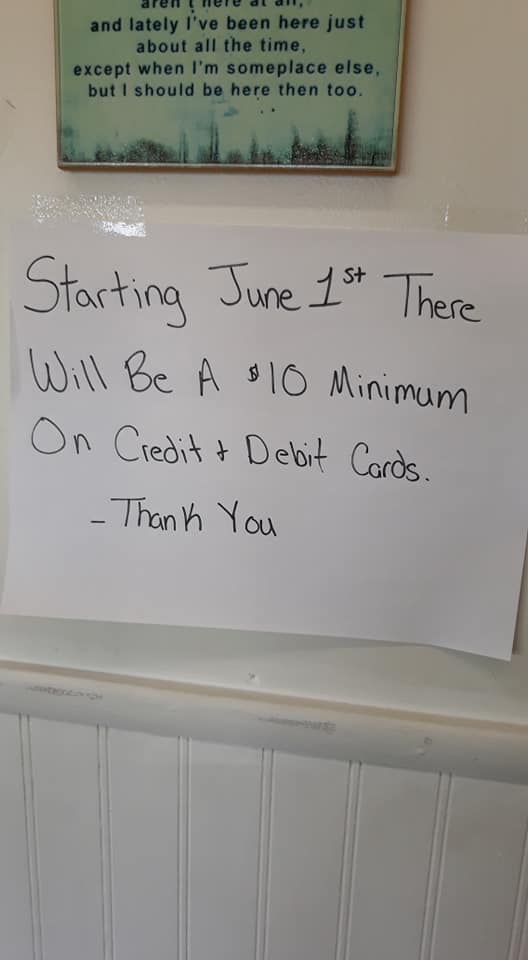 aren't here at all,
and lately I've been here just
about all the time,
except when I'm someplace else,
but I should be here then too.
Starting June 1st There
Will Be A $10 Minimum
On Credit + Debit Cards.
- Thank You